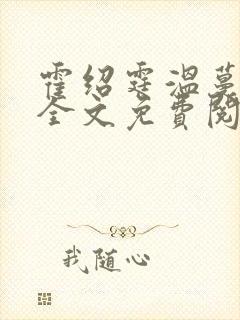 霍绍霆温蔓
全文免費閱
我随心